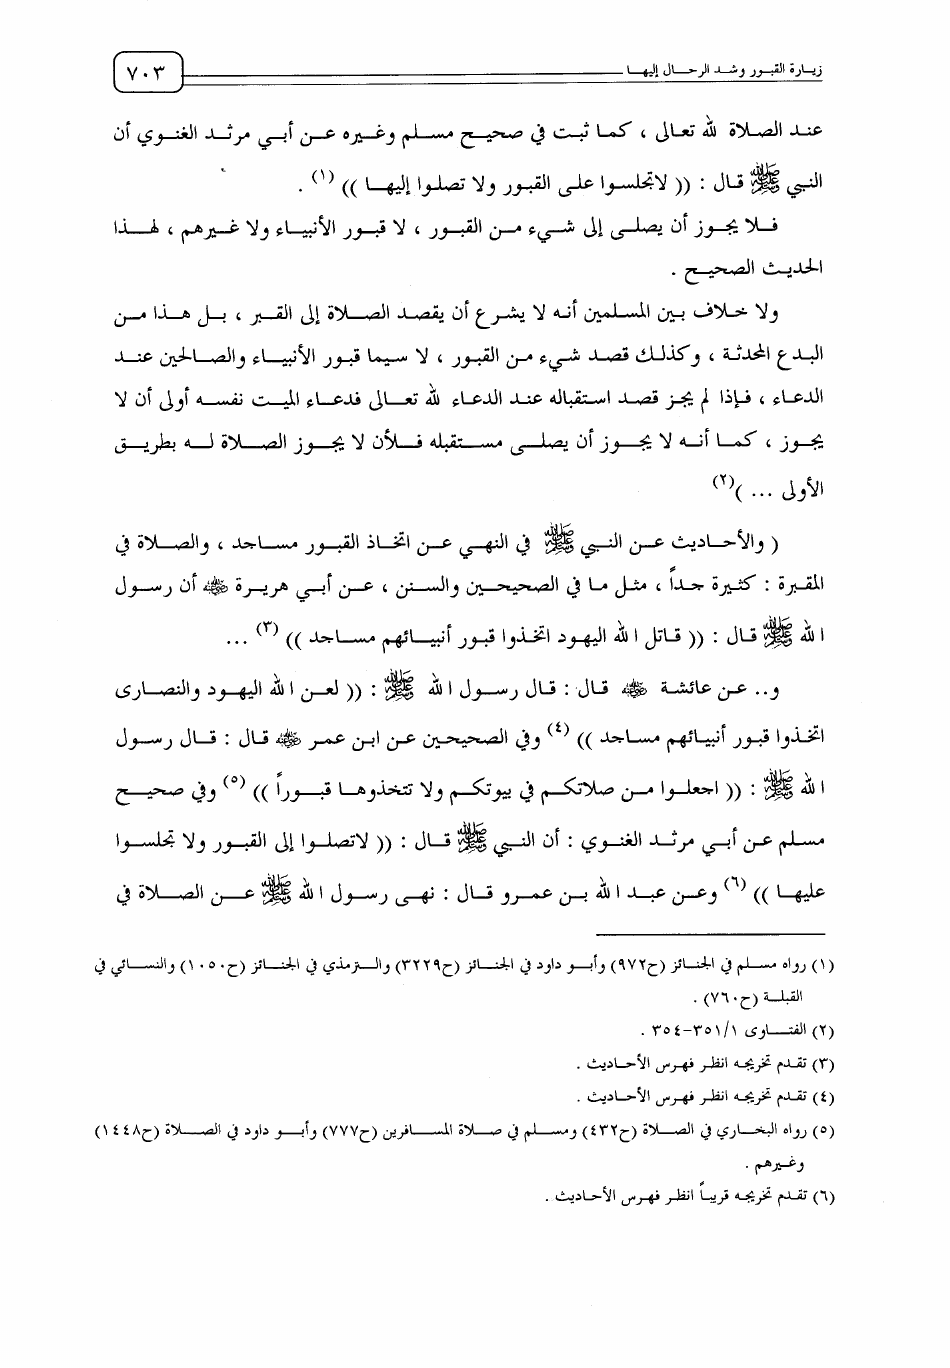 زيارة القبور وشد الرحال إليها ٧٠٣
عند الصلاة لله تعالى ، كما ثبت في صحيح مسلم وغيره عن أبي مرثد الغنوي أن
النبي ﷺ قال : (( لاتجلسوا على القبور ولا تصلوا إليها )) (١) .
فلا يجوز أن يصلى إلى شيء من القبور ، لا قبور الأنبياء ولا غيرهم ، لهذا
الحديث الصحيح .
ولا خلاف بين المسلمين أنه لا يشرع أن يقصد الصلاة إلى القبر ، بل هذا من
البدع المحدثة ، وكذلك قصد شيء من القبور ، لا سيما قبور الأنبياء والصالحين عند
الدعاء ، فإذا لم يجز قصد استقباله عند الدعاء لله تعالى فدعاء الميت نفسه أولى أن لا
يجوز ، كما أنه لا يجوز أن يصلى مستقبله فلأن لا يجوز الصلاة له بطريق
الأولى ... )(٢)
( والأحاديث عن النبي ﷺ في النهي عن اتخاذ القبور مساجد ، والصلاة في
المقبرة : كثيرة جداً ، مثل ما في الصحيحين والسنن ، عن أبي هريرة ﵁ أن رسول
الله ﷺ قال : (( قاتل الله اليهود اتخذوا قبور أنبيائهم مساجد )) (٣) ...
و.. عن عائشة ﵂ قال : قال رسول الله ﷺ : (( لعن الله اليهود والنصارى
اتخذوا قبور أنبيائهم مساجد )) (٤) وفي الصحيحين عن ابن عمر ﵁ قال : قال رسول
الله ﷺ : (( اجعلوا من صلاتكم في بيوتكم ولا تتخذوها قبوراً )) (٥) وفي صحيح
مسلم عن أبي مرثد الغنوي : أن النبي ﷺ قال : (( لاتصلوا إلى القبور ولا تجلسوا
عليها )) (٦) وعن عبد الله بن عمرو قال : نهى رسول الله ﷺ عن الصلاة في
(١) رواه مسلم في الجنائز (ح٩٧٢) وأبو داود في الجنائز (ح٣٢٢٩) والترمذي في الجنائز (ح١٠٥٠) والنسائي في
القبلة (ح٧٦٠) .
(٢) الفتاوى ٣٥١/١-٣٥٤ .
(٣) تقدم تخريجه انظر فهرس الأحاديث .
(٤) تقدم تخريجه انظر فهرس الأحاديث .
(٥) رواه البخاري في الصلاة (ح٤٣٢) ومسلم في صلاة المسافرين (ح٧٧٧) وأبو داود في الصلاة (ح١٤٤٨)
وغيرهم .
(٦) تقدم تخريجه قريباً انظر فهرس الأحاديث .